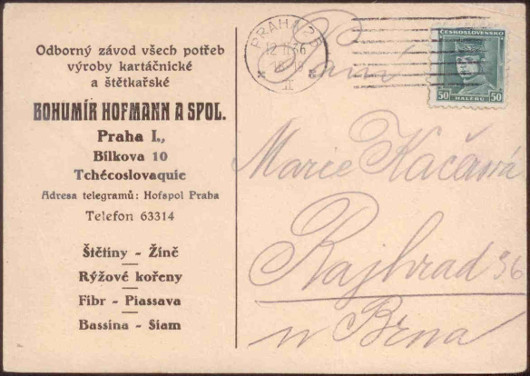 Odborný závod všech potřeb
výroby kartáčnické
a štětkařské
BOHUMÍR HOFMANN A SPOL.
Praha I.,
Bílkova 10
Tchécoslovaquie
Adresa telegramů: Hofspol Praha
Telefon 63314
Štětiny - Žíně
Rýžové kořeny
Fíbr - Piassava
Bassina - Siam
PRAHA 25
12 II 36
ČESKOSLOVENSKO
50 HALÉŘŮ 50
Paní
Marie Kačerová
Rajhrad 36
u Brna